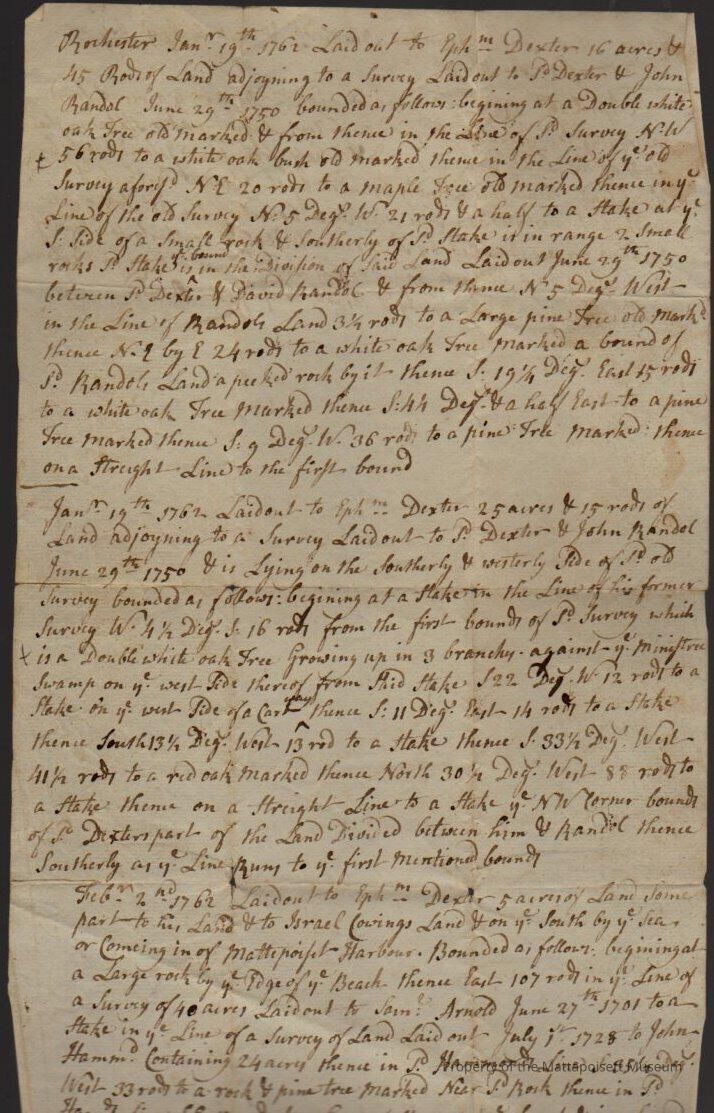 Rochester Janr 19th 1762 Laid out to Ephm Dexter 16 acres &
45 Rods of Land adjoyning to a Survey Laid out to Sd Dexter & John
Randol June 29th 1750 bounded as follows: begining at a Double white
oak Tree old marked & from thence in the Line of Sd Survey N.W
56 rods to a white oak bush old marked thence in the Line of ye old
Survey aforesd N.E 20 rods to a maple Tree old marked thence in ye
Line of the old Survey No. 5 Degs. W. 21 rods & a half to a Stake at ye
S. Side of a Small rock & Southerly of Sd Stake is in range 2 Small
rocks Sd Stake is ye bound in the Division of Said Land Laid out June 29th 1750
between Sd Dexter & David Randol & from thence N 5 Degs. West
in the Line of Randols Land 34 rods to a Large pine Tree old markd
thence N.E by E 24 rods to a white oak Tree marked a bound of
Sd Randols Land a peeked rock by it thence S. 19 1/4 Degs. East 15 rods
to a white oak Tree marked thence S: 44 Degs. & a half East to a pine
Tree marked thence S: 9 Degs. W. 36 rods to a pine Tree marked: thence
on a Streight Line to the first bound
Janr 19th 1762 Laid out to Ephm Dexter 25 acres & 15 rods of
Land adjoyning to a Survey Laid out to Sd Dexter & John Randol
June 29th 1750 & is Lying on the Southerly & westerly Side of Sd old
Survey bounded as follows: begining at a Stake in the Line of his former
Survey W. 4 1/2 Degs. S. 16 rods from the first bounds of Sd Survey which
is a Double white oak Tree Growing up in 3 branches. against ye ministree
Swamp on ye west Side thereof from Said Stake S 22 Degs. W. 12 rods to a
Stake on ye west Side of a Cart way thence S: 11 Degs. East 14 rods to a Stake
thence South 13 1/2 Degs. West 13 rod to a Stake thence S. 33 1/2 Degs. West
41 1/2 rods to a red oak marked thence North 30 1/2 Degs. West 88 rods to
a Stake thence on a Streight Line to a Stake ye N W Corner bounds
of Sd Dexters part of the Land Divided between him & Randol thence
Southerly as ye Line Runs to ye first mentioned bounds
Febr 2nd 1762 Laid out to Ephm Dexter 5 acres of Land Some
part to his Land & to Israel Cowings Land & on ye South by ye Sea
or Comeing in of Mattepoiset Harbour. Bounded as follows: begining at
a Large rock by ye Edge of ye Beach thence East 107 rods in ye Line of
a Survey of 40 acres Laid out to Saml Arnold June 27th 1701 to a
Stake in ye Line of a Survey of Land Laid out July 1st 1728 to John
Hammd Containing 24 acres thence in Sd
West 33 rods to a rock & pine tree marked Near Sd Rock thence in Sd
Property of the Mattapoisett Museum